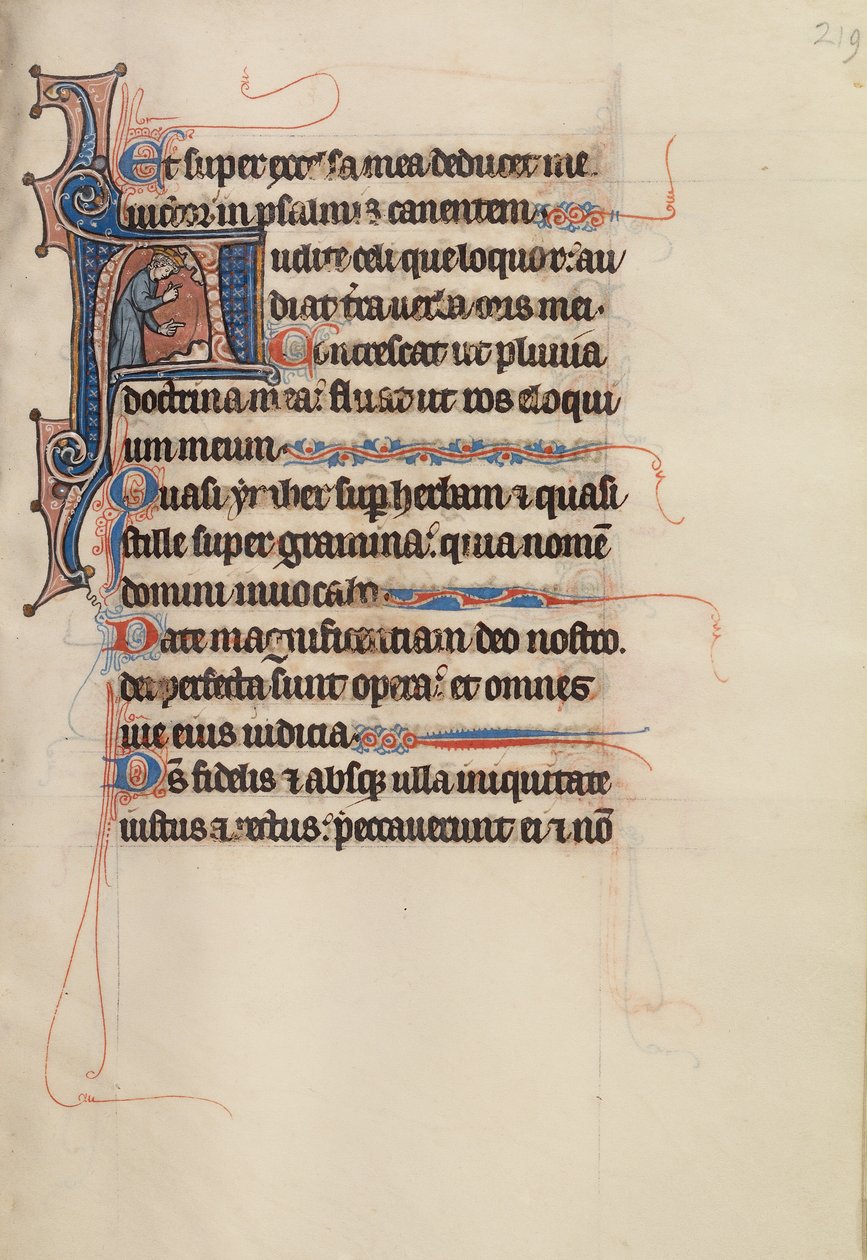 219
Et super excelsa mea deducet me
uictor in psalmis canentem
Audite celi que loquor: au
diat t̄ra uerba oris mei.
Concrescat ut pluuia
doctrina mea: fluat ut ros eloqui
um meum.
Quasi ymber sup herbam ⁊ quasi
stille super gramina: quia nomē
domini inuocabo.
Date magnificentiam deo nostro.
dei perfecta sunt opera: et omnes
uie eius iudicia.
Ds̄ fidelis ⁊ absq; ulla iniquitate
iustus ⁊ rectus: peccauerunt ei ⁊ nō